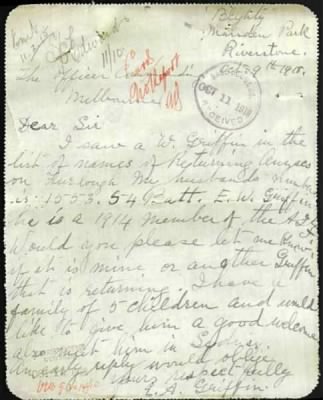 "Blighty"
Marsden Park
Riverstone.
Oct. 9th 1918.
11/10
The Officer
Melbourne
OCT 11 1918
RECEIVED
Dear Sir
I saw a W. Griffin in the
list of names of Returning Anzacs
on Furlough Me husbands number
is 1553. 54 Batt. E. W. Griffin
he is a 1914 member of the A.I.F.
Would you please let me know
if it is mine or another Griffin
that is returning. I have a
family of 5 children and would
like to give him a good welcome
also meet him in Sydney.
An early reply would oblige
Yours respectfully
E. A. Griffin